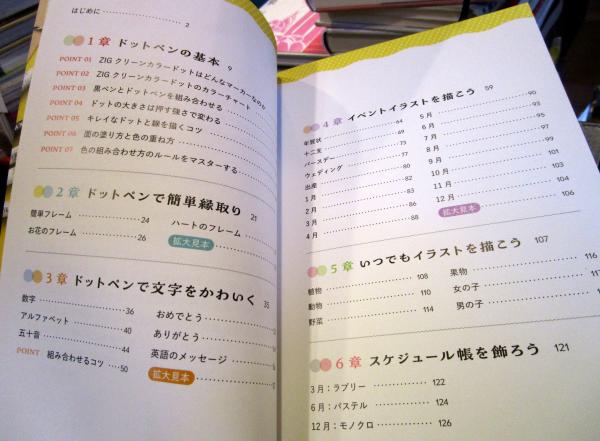 はじめに 2
1章 ドットペンの基本 9
POINT 01 ZIG クリーンカラードットはどんなマーカーなのか
POINT 02 ZIG クリーンカラードットのカラーチャート
POINT 03 黒ペンとドットペンを組み合わせる
POINT 04 ドットの大きさは押す強さで変わる
POINT 05 キレイなドットと線を描くコツ
POINT 06 面の塗り方と色の重ね方
POINT 07 色の組み合わせ方のルールをマスターする
2章 ドットペンで簡単縁取り 21
簡単フレーム 24
お花のフレーム 26
ハートのフレーム
拡大見本
3章 ドットペンで文字をかわいく 35
数字 36
アルファベット 40
五十音 44
POINT 組み合わせるコツ 50
おめでとう
ありがとう
英語のメッセージ
拡大見本
4章 イベントイラストを描こう 59
年賀状 64
十二支 69
バースデー 73
ウェディング 77
出産 80
1月 82
2月 83
3月 86
4月 88
5月 90
6月 93
7月 95
8月 97
9月 99
10月 101
11月 103
12月 104
拡大見本 106
5章 いつでもイラストを描こう 107
植物 108
動物 110
野菜 114
果物 116
女の子
男の子
6章 スケジュール帳を飾ろう 121
3月:ラブリー 122
6月:パステル 124
12月:モノクロ 126